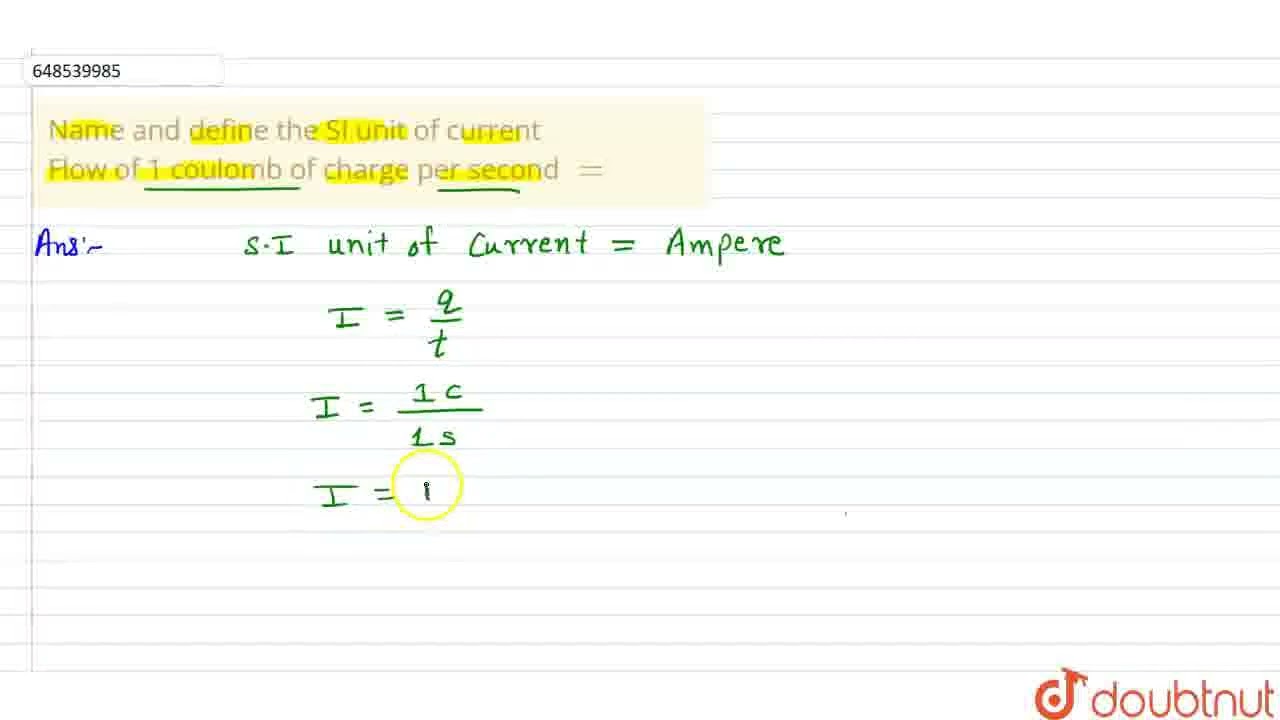 648539985
Name and define the SI unit of current
Flow of 1 coulomb of charge per second =
Ans:- S.I unit of Current = Ampere
I = q/t
I = 1C/1s
I = 1
doubtnut